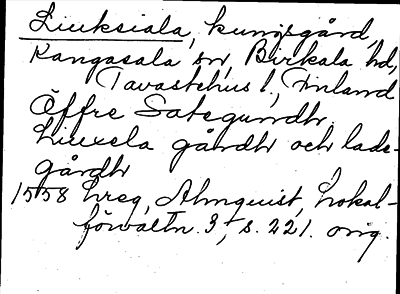 Liuksiala, kungsgård,
Kangasala sn, Birkala hd,
Tavastehus l., Finland
Öffre Sategundh.
Liuxela gårdh och lade-
gårdh
1558 hreg, Almquist, Lokal-
förvaltn. 3, s. 221. orig.